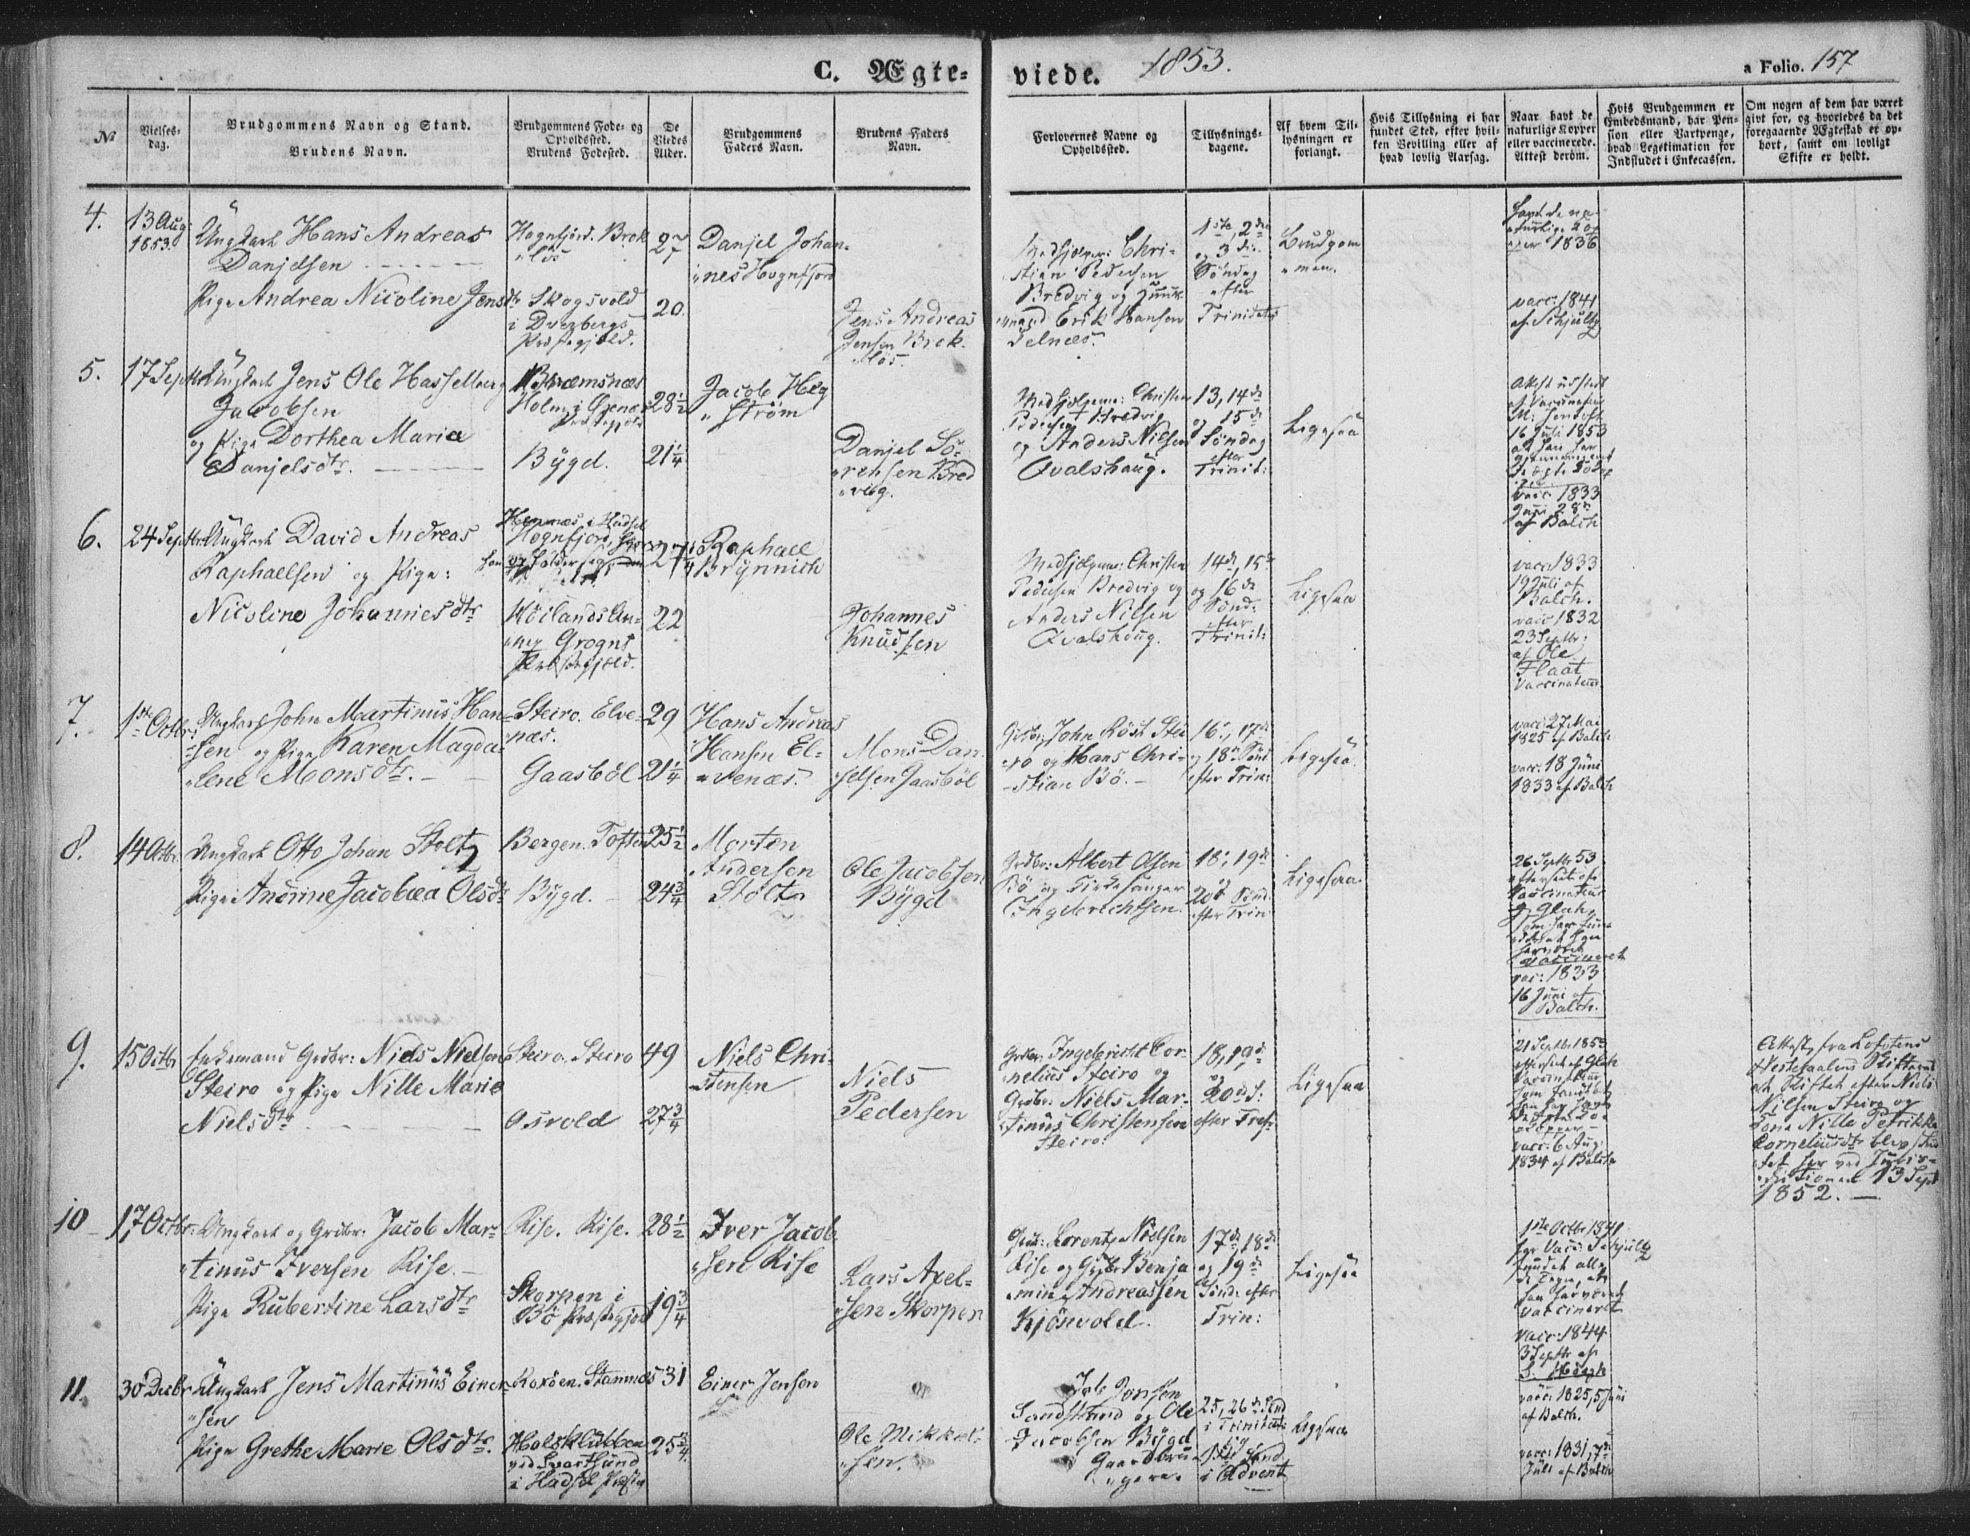 C. Ægte-
viede. 1853.
a Folio. 157
№
Vielses-
dag.
Brudgommens Navn og Stand.
Brudens Navn.
Brudgommens Føde- og
Opholdssted.
Brudens Fødested.
De
Viedes
Alder.
Brudgommens
Faders Navn.
Brudens Faders
Navn.
Forlovernes Navne og
Opholdssted.
Tillysnings-
dagene.
Af hvem Til-
lysningen er
forlangt.
Hvis Tillysning ei har
fundet Sted, efter hvil-
ken Bevilling eller af
hvad lovlig Aarsag.
Naar havt de
naturlige Kopper
eller vaccinerede.
Attest derom.
Hvis Brudgommen er
Embedsmand, har Pen-
sion eller Vartpenge,
hvad Legetimation for
Indskudet i Enkecassen.
Om nogen af dem har været
givt før, og hvorledes da det
foregaaende Ægteskab er op-
hørt, samt om lovligt
Skifte er holdt.
4.
13 Aug
1853.
Ungkarl Hans Andreas
Danjelsen
Pige Andrea Nicoline Jensdtr
Hognfjord. Brok-
løs
Skogsvold
i Dverbergs
Præstegjeld.
27
20
Danjel Johan-
nes Hognfjord
Jens Andreas
Jensen Brok-
løs.
Medhjelper: Chri-
stian Pedersen
Bredvig og
Erik Hansen
1ste, 2den
og 3die
Søndag
efter
Trinitatis
Brudgom-
men.
havt de na-
turlige Kop-
per 1836
vacc: 1841
af Schjultz
5.
17 Septbr
Ungkarl Jens Ole Hasselberg
Jacobsen
og Pige Dorthea Maria
Danjelsdtr.
Bremsnæs
Holm i Øxnes
Præstegjeld
Bÿgd.
28½
21¼
Jacob Heg-
strøm
Danjel Sø-
rensen Bred-
vig.
Medhjelperne: Christen
Pedersen Bredvig
og Anders Nilsen
Qvalshaug.
13, 14de
og 15de
Søndag
efter
Trinit:
Ligesaa
Attest udstedt
af Vaccinateur
16 Juli 1853
at han har
de ægte Kop-
vacc: 1833
Juni 28de
af Balch
6.
24 Septbr
Ungkarl David Andreas
Raphaelsen og Pige:
Nicoline Johannesdtr
Hennes, i Hadsel
Hognfjord,
Høilands An-
nex Grogns
Præstegjeld.
27¼
22
Raphael
Brÿnnich
Johannes
Knudsen
Medhjelperne: Christen
Pedersen Bredvig og
Anders Nilsen
Qvalshaug.
14de, 15de
og 16de
Sønd:
efter
Trinit:
Ligesaa
vacc: 1833
19 Juli af
Balch.
vacc 1832
23 Septbr:
af Ole
Flaat
Vaccinateur
7.
1ste Octbr.
Ungkarl John Martinus Han-
sen og Pige Karen Magda-
lene Monsdtr.
Steiro. Elve-
næs.
Gaasbøl
29
21¼
Hans Andreas
Hansen El-
venæs.
Mons Dan-
jelsen Gaasbøl
Grdbr: John Røst Stei-
ro og Hans Chri-
stian Bø.
16, 17de
og 18de Sønd
efter Trin:
Ligesaa.
vacc 27 Mai
1825 af Balch
vacc: 18 Juni
1833 af Balch
8.
14 Octbr
Ungkarl Otto Johan Stoltz
Pige Anorine Jacobæa Olsdtr
Bergen. Toften
Bÿgd.
25½
24¾
Morten
Andersen
Stolt
Ole Jacobsen
Bÿgd
Grdbr: Albert Olsen
Bø og Kirkesanger
Ingebrechtsen.
18, 19de
og
20de Sønd
efter Trin
Ligesaa.
26 Septbr 53
Vaccinateur
Glah,
som har
vaccineret
vac: 1833
16 Juni af
Balch.
9.
15 Octbr
Enkemand Grdbr: Niels Nielsen
Steiro og Pige Nille Marie
Nielsdtr
Steiro. Steiro
Osvold
49
27¾
Niels Chri-
stensen
Niels
Pedersen
Grdbr Ingebricht Cor-
nelius Steiro og
Grdbr: Niels Mar-
tinus Christensen
Steiro:
18, 19de
og
20de S:
efter Tref:
Ligesaa
21 Septbr 1853
af Glah
Vaccinateur
som
Kopper
vacc: 6 Aug.
1834 af Balch
Attest fra Lofotens
og Vesteraalens Skifteret
at Skiftet efter Niels
Nilsen Steiro og
Kone Nille Petrikke
Corneliusdtr blev slut-
tet her ved Juris-
dictionen 13 Sept
1852.
10
17 Octbr:
Ungkarl og Grdbr: Jacob Mar-
tinus Iversen Rise.
Pige Rubertine Larsdtr
Rise. Rise.
Skorpen i
Bø Præstegjeld
28½
19¾
Iver Jacob-
sen Rise
Lars Axel-
sen Skorpen
Grdbr: Lorents Nielsen
Rise og Grdbr Benja-
min Andreassen
Kjørvold.
17de, 18de
og 19de
Sønd: efter
Trin:
Ligesaa
1ste Octbr 1841
har Vacc: Schjultz
fundet alle
de Tegn, at
han har været
vaccineret
vacc: 1844
3 Septbr af
S. Høegh
11.
30 Decbr
Ungkarl Jens Martinüs Einer-
sen
Pige Grethe Marie Olsdtr.
Roxøen. Stamnes
Holsklubben
ved Svartsund
i Hadsel Præstegj
31
25¾
Einer Jensen
Ole Mikkel-
sen.
Jonsen
Sandstrand og Ole
Jacobsen Bÿgd
Gaardbru-
gere.
25, 26de Sønd
i Trinitatis
og
1ste Sønd
i Advent
Ligesaa
vacc: 1825, 5 Juni
af Balch.
vacc: 1831, 7de
Juli af Balch